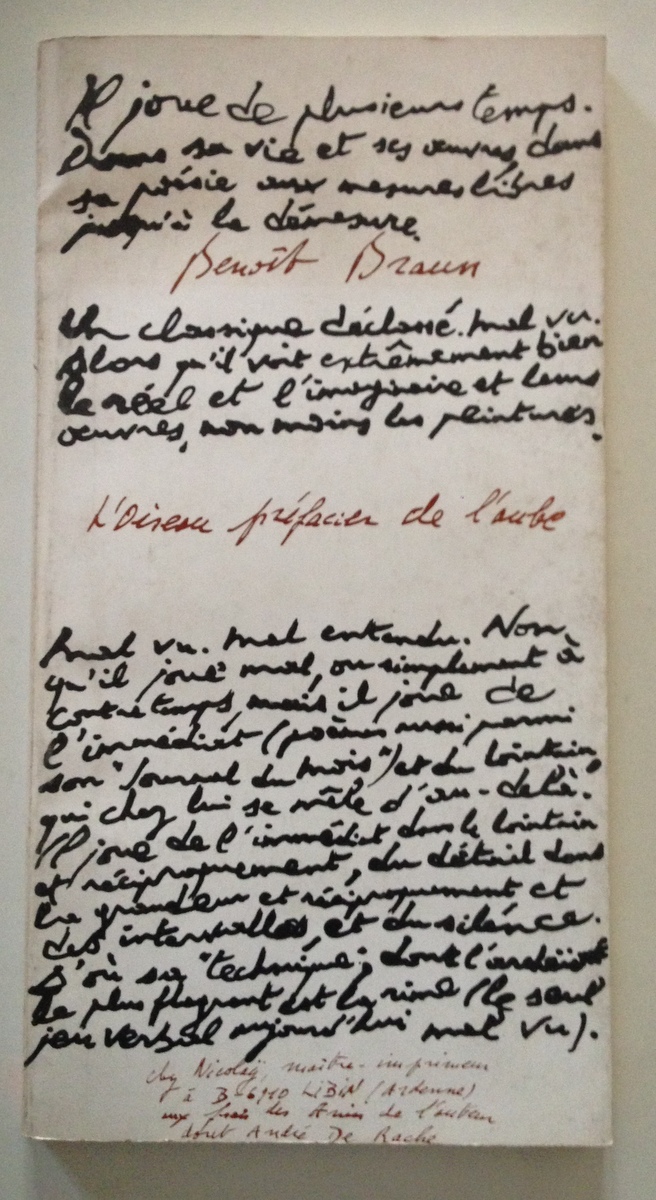 Il joue de plusieurs temps.
Dans sa vie et ses œuvres, dans
sa poésie aux mesures libres
jusqu'à la démesure.
Benoît Braun
Un classique déclassé. Mal vu.
Alors qu'il voit extrêmement bien
le réel et l'imaginaire et leurs
œuvres, non moins les peintures.
L'Oiseau préfacier de l'aube
Mal vu. Mal entendu. Non,
qu'il joue mal, ou simplement à
contretemps, mais il joue de
l'immédiat (poèmes aussi parmi
son "Journal du Mois") et du lointain,
qui chez lui se mêle d'au-delà.
Il joue de l'immédiat dans le lointain
et réciproquement, du détail dans
la grandeur et réciproquement et
des intervalles et du silence.
D'où sa "technique", dont l'
le plus flagrant est la rime (le seul
jeu verbal aujourd'hui mal vu).
chez Nicolaÿ, maître-imprimeur
à B-6910 LIBIN (Ardenne)
aux frais des Amis de l'auteur
dont André De Rache